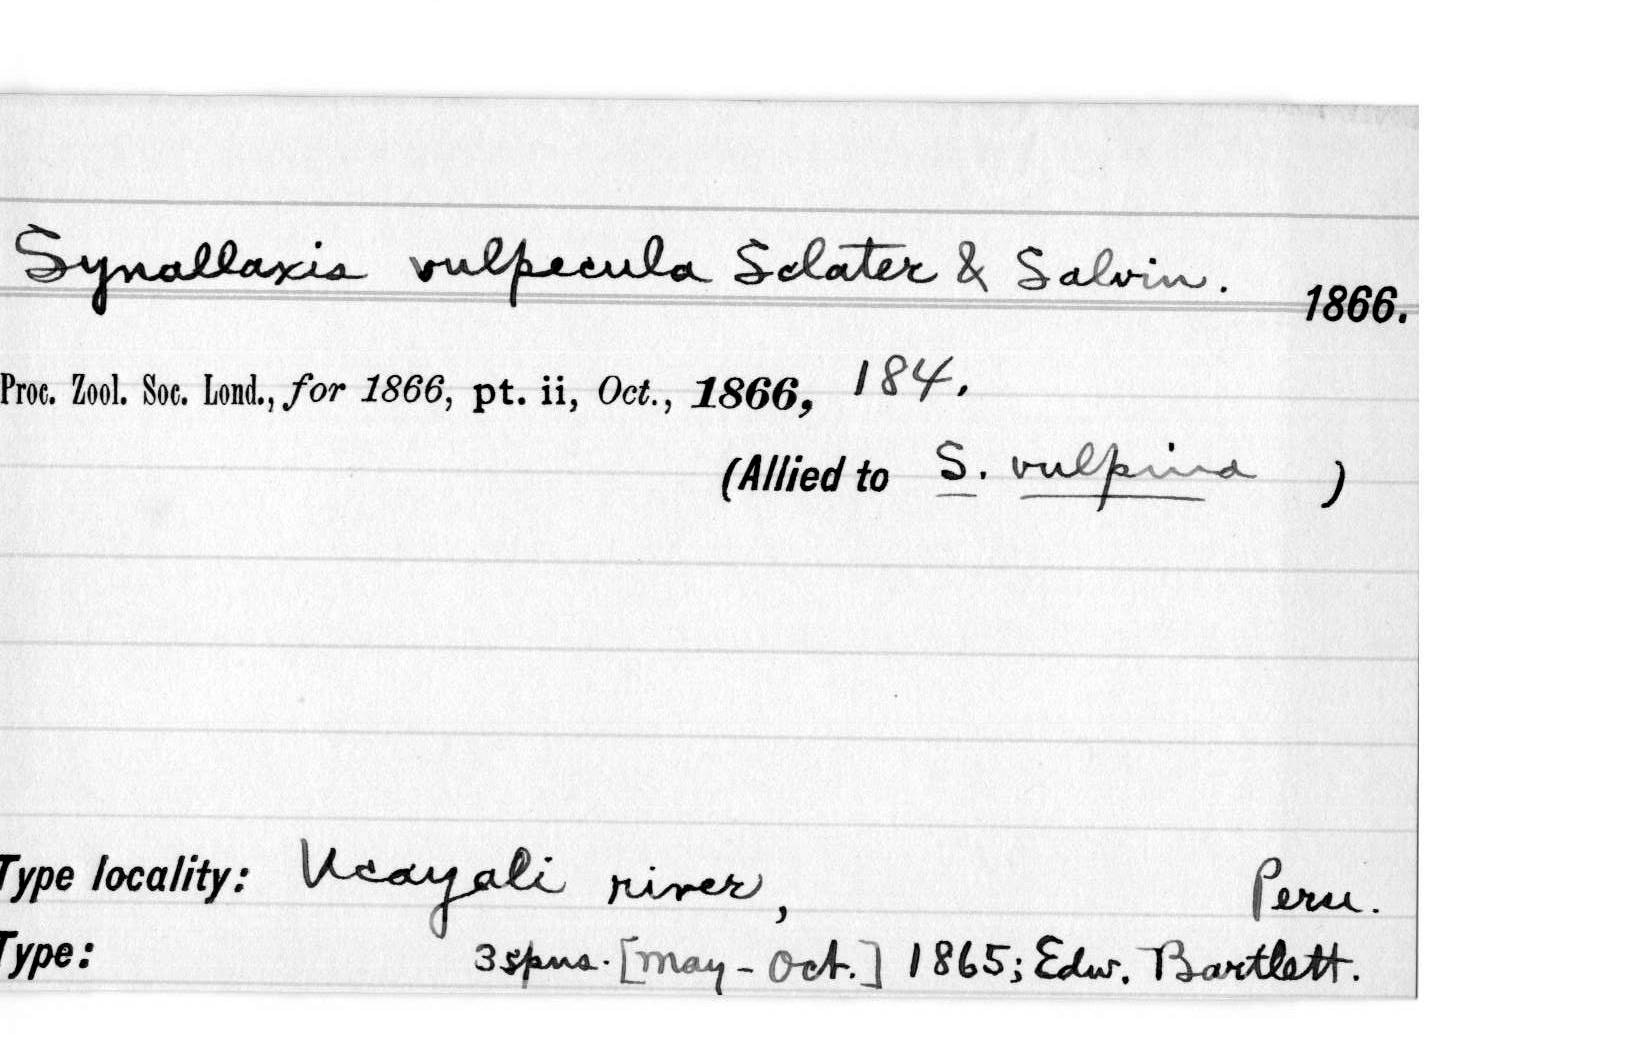 Synallaxis vulpecula Sclater & Salvin. 1866.
Proc. Zool. Soc. Lond., for 1866, pt. ii, Oct., 1866, 184.
(Allied to S. vulpina )
Type locality: Ucayali river, Peru.
Type: 3 spns. [May - Oct.] 1865; Edw. Bartlett.